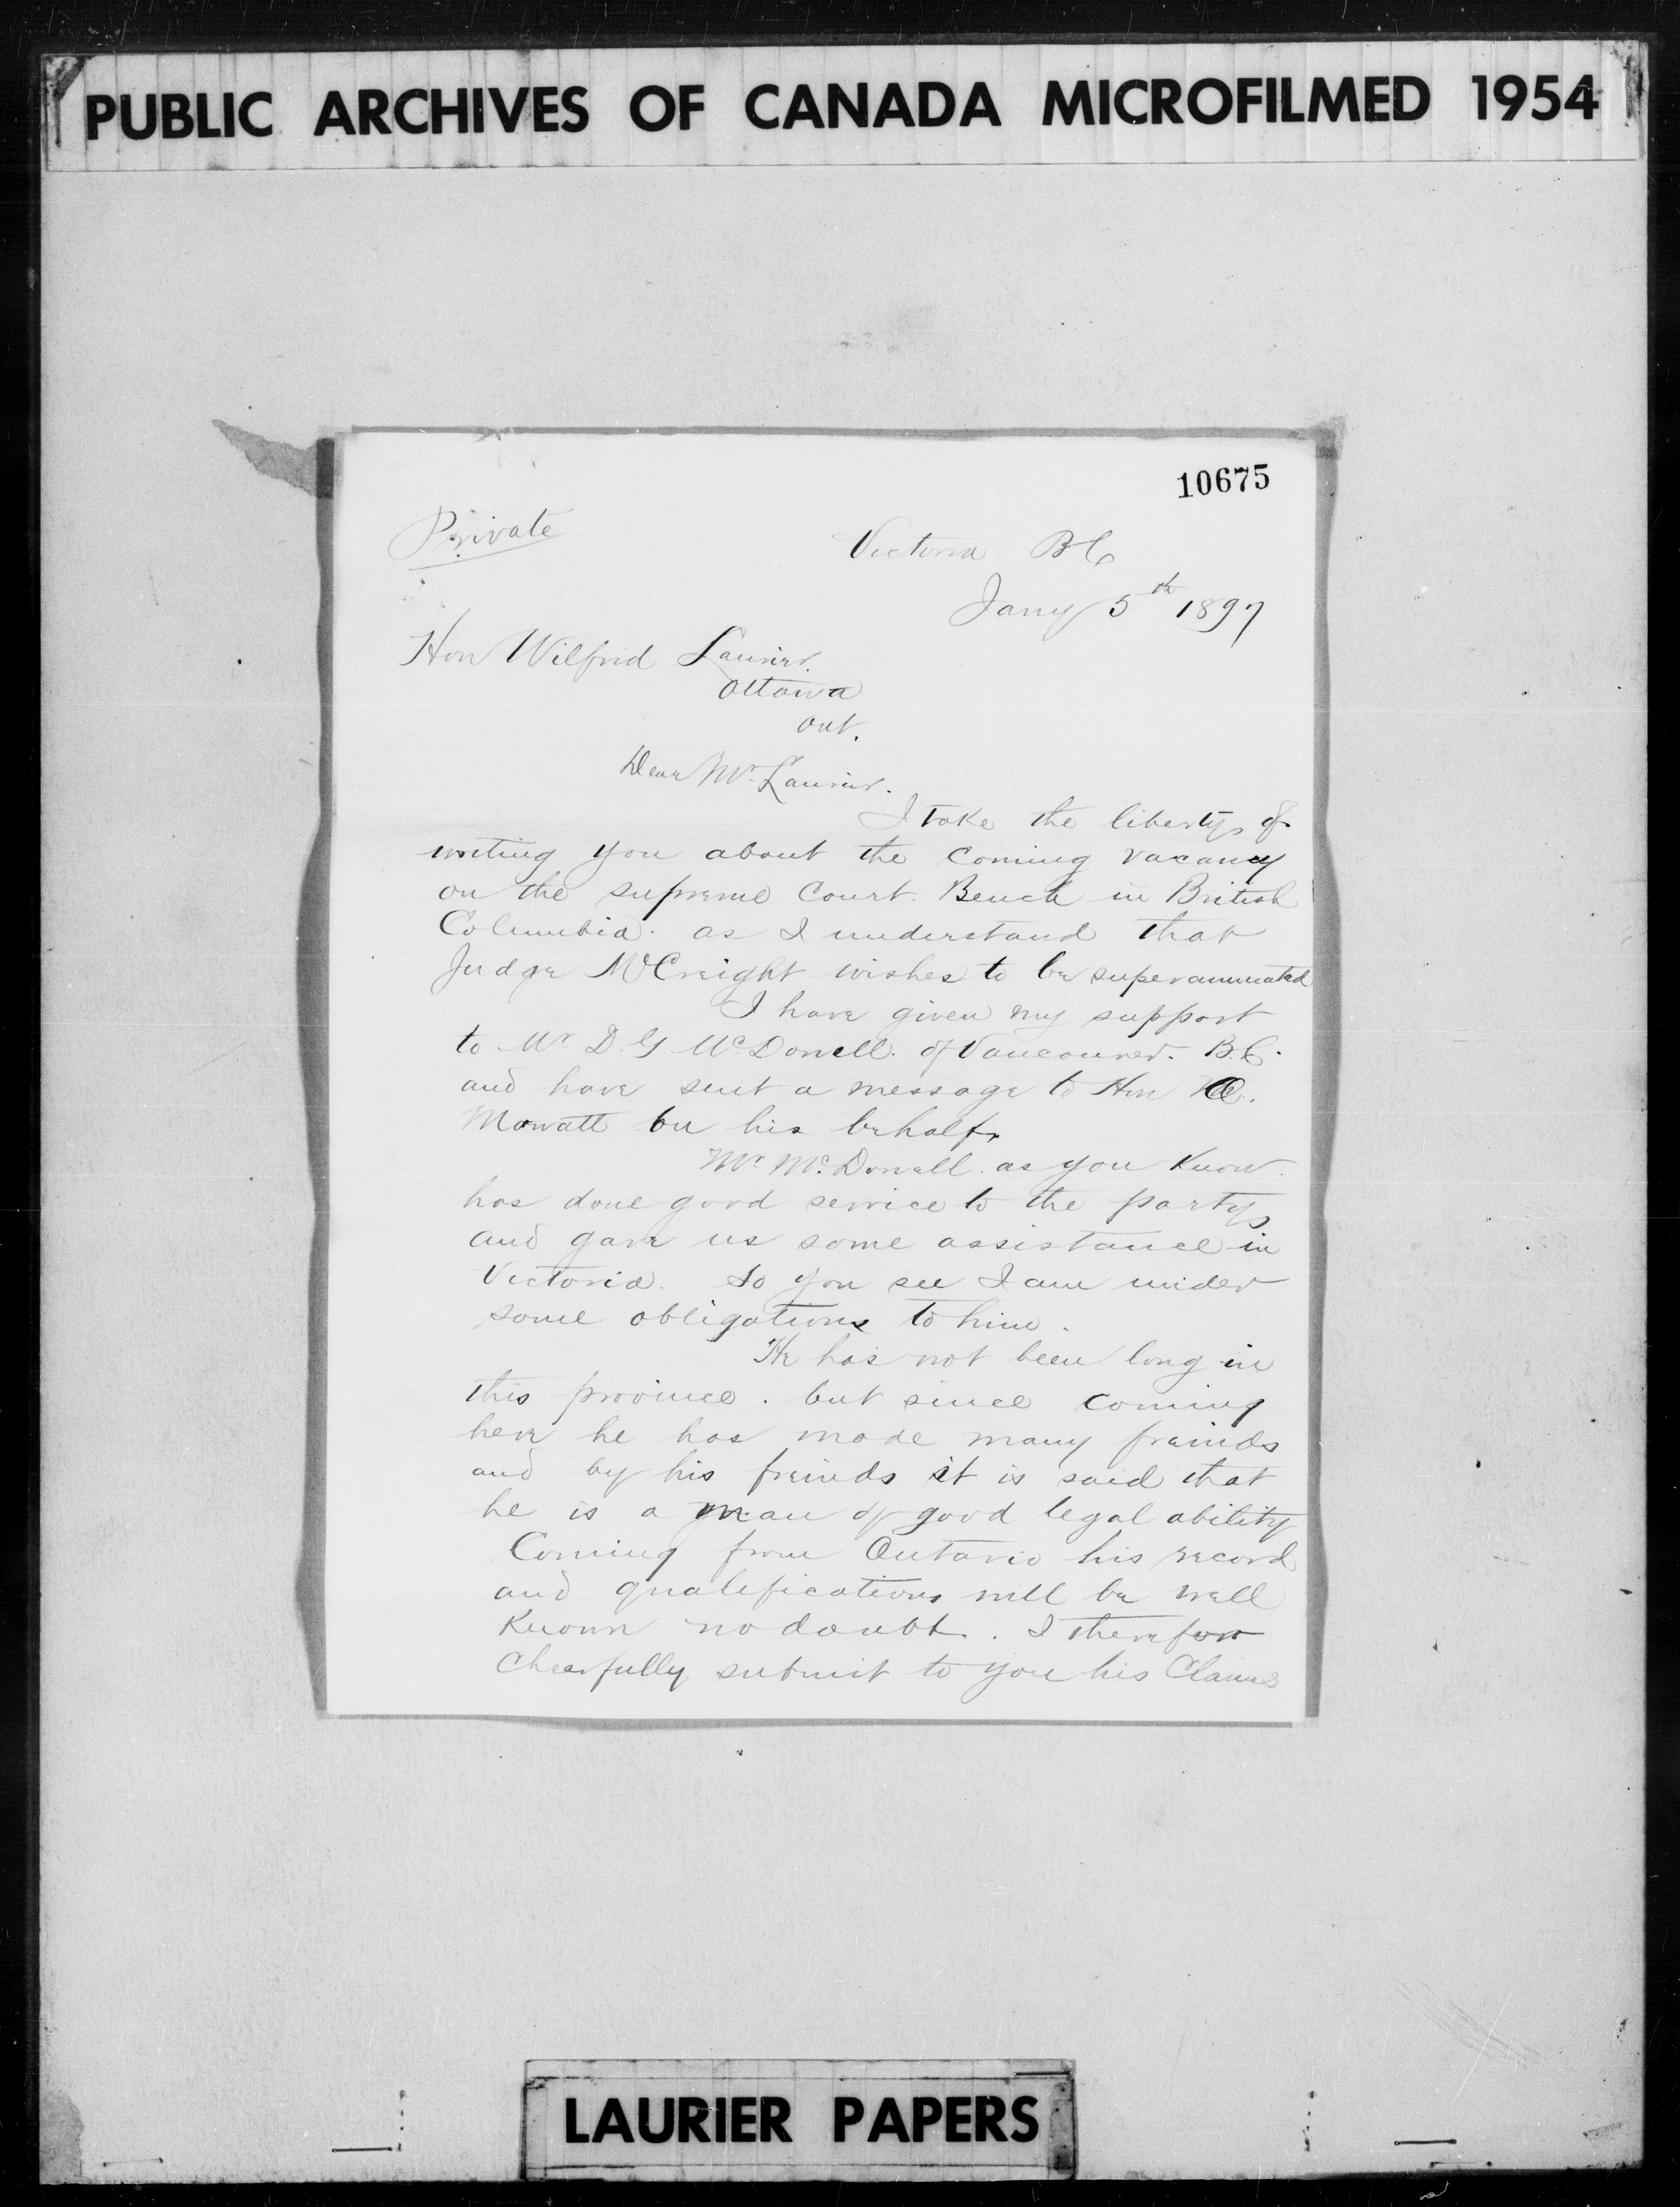 PUBLIC ARCHIVES OF CANADA MICROFILMED 1954
10675
Private
Victoria B C
Jany 5th 1897
Hon Wilfrid Laurier.
Ottawa
Ont.
Dear Mr. Laurier.
I take the liberty of
writing you about the Coming vacancy
on the supreme Court. Bench in British
Columbia. as I understand that
Judge McCreight wishes to be superannuated
I have given my support
to Mr D. G. McDonell. of Vancouver. B.C.
and have sent a message to Hon O.
Mowatt on his behalf.
Mr. McDonell. as you Know.
has done good service to the party
and gave us some assistance in
Victoria. So you see I am under
some obligations to him.
He has not been long in
this province. but since coming
here he has made many freinds
and by his freinds it is said that
he is a man of good legal ability
Coming from Ontario his record
and qualifications will be well
Known no doubt. I therefore
Chearfully submit to you his Claims
LAURIER PAPERS